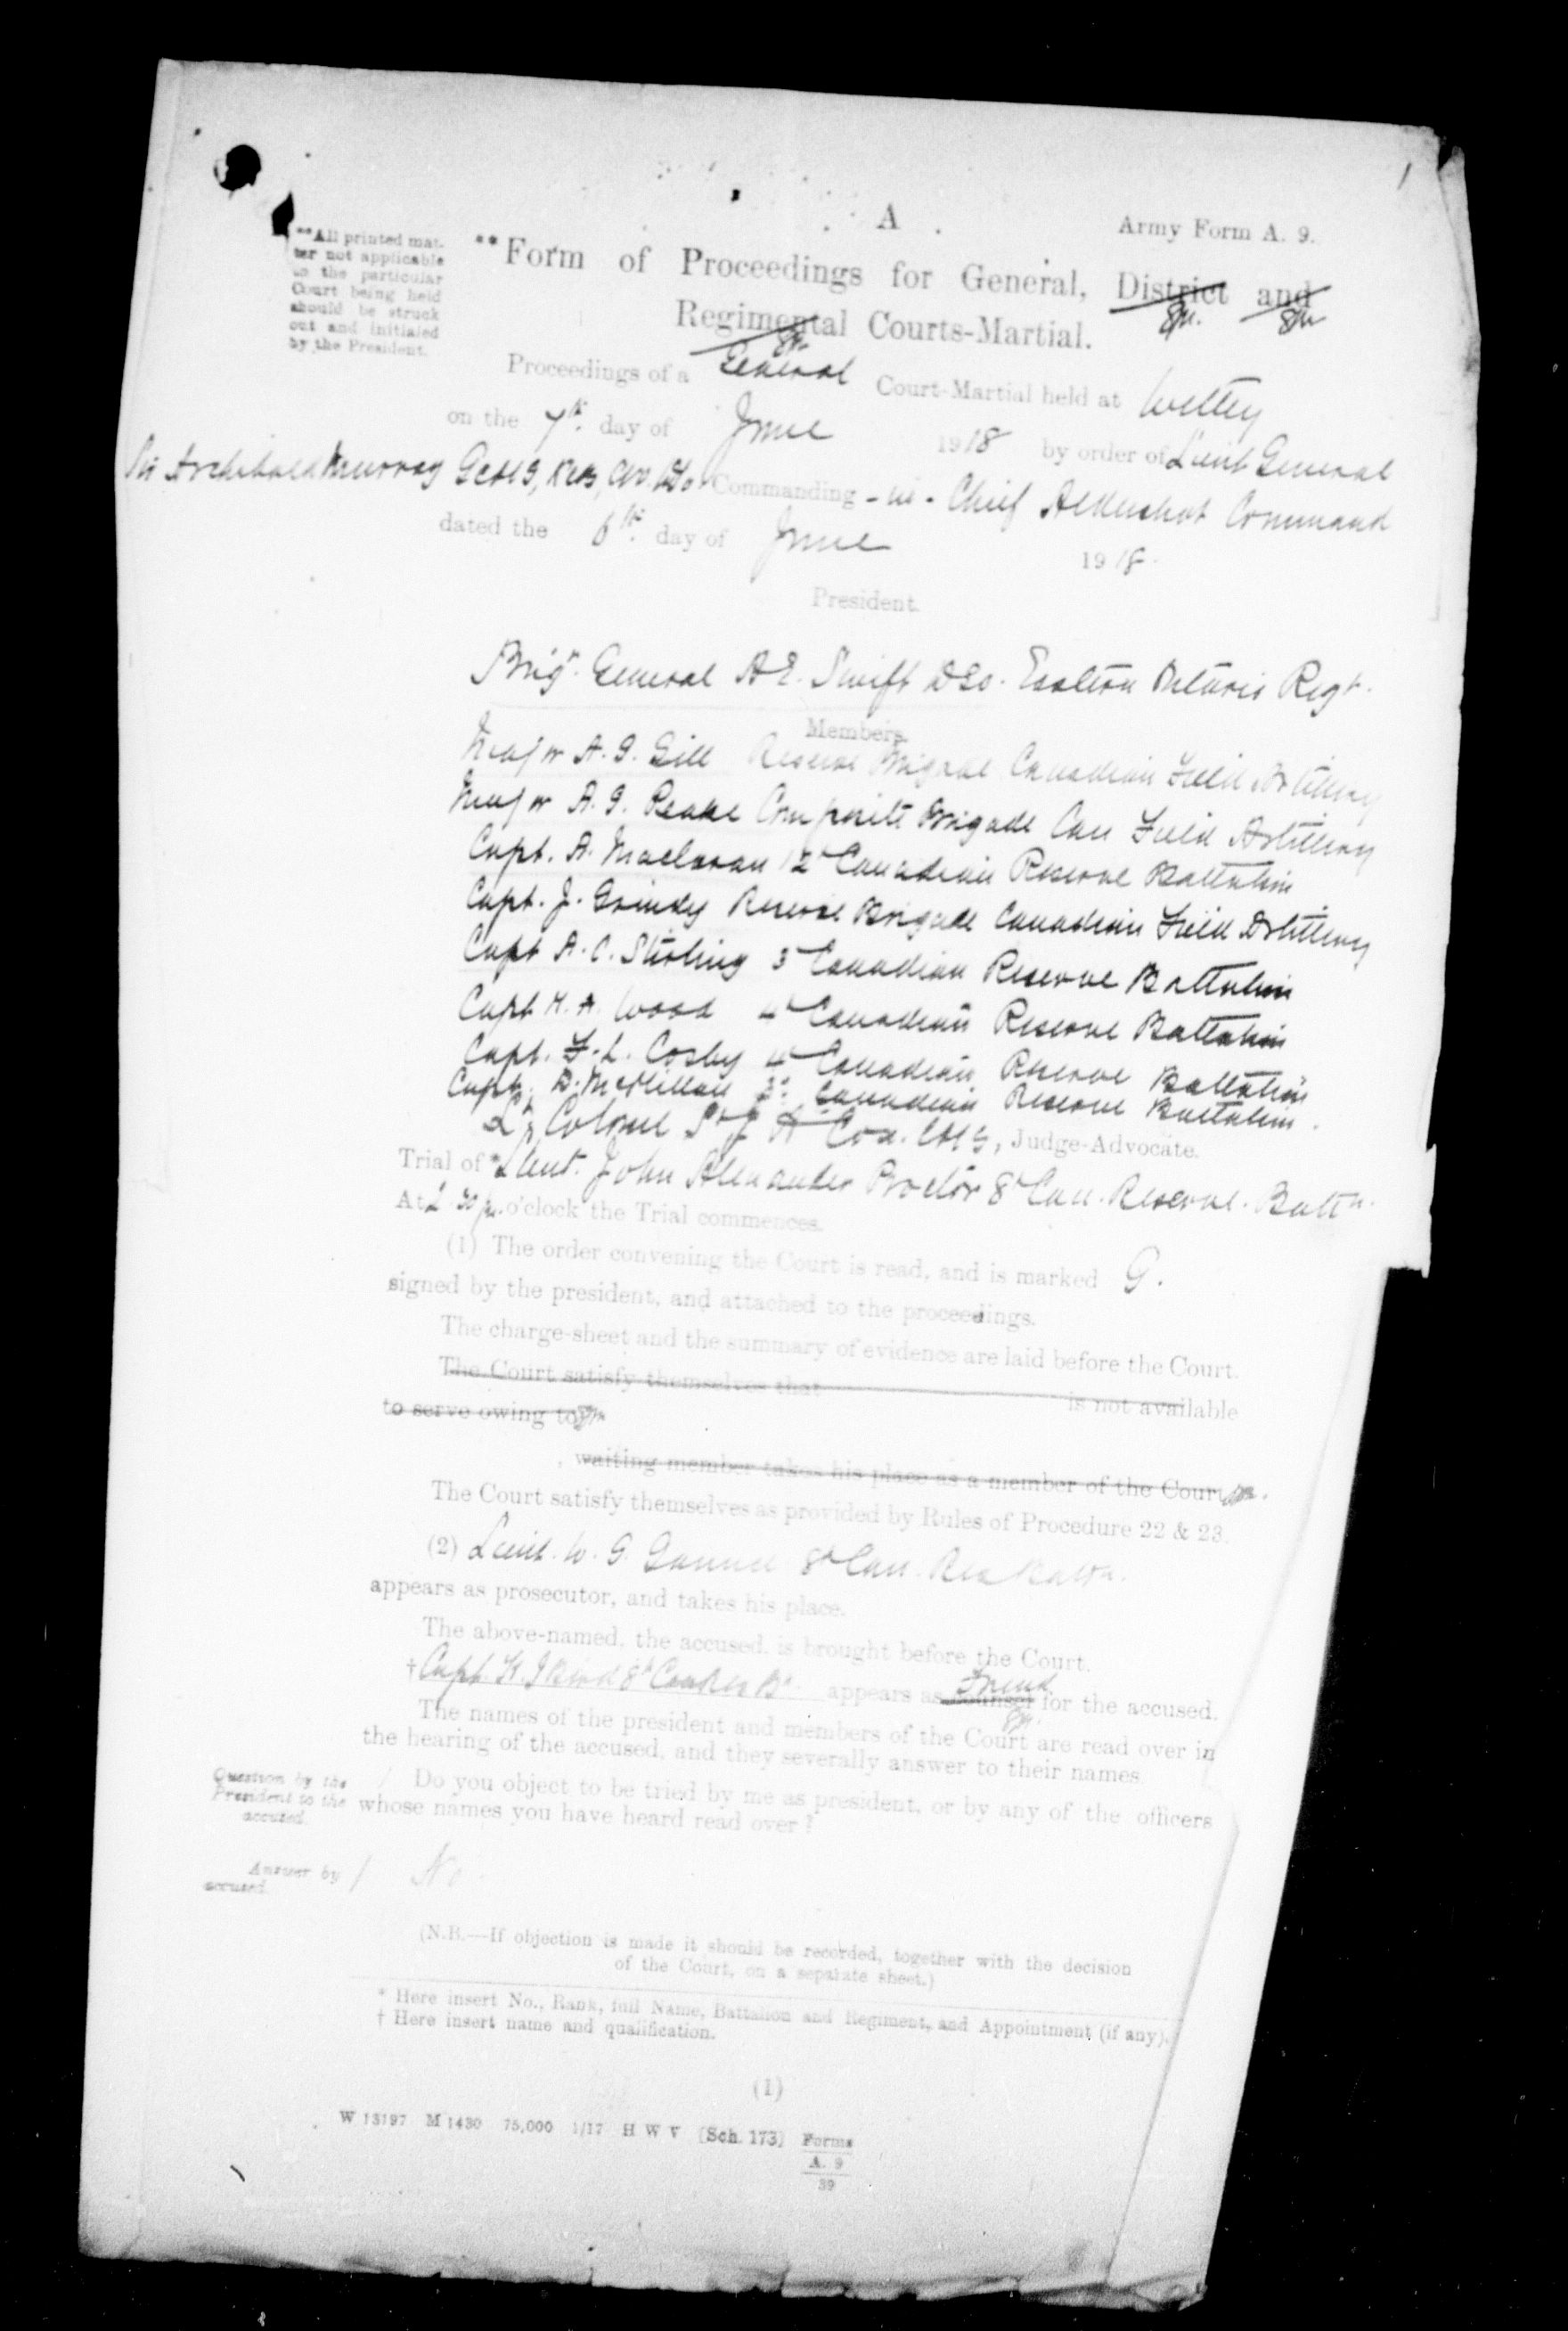 1
A
Army Form A. 9.
**All printed mat-
ter not applicable
to the particular
Court being held
should be struck
out and initialed
by the President.
**Form of Proceedings for General, District and
Regimental Courts-Martial.
Proceedings of a General Court-Martial held at Witley
on the 7th day of June 1918 by order of Lieut General
Sir Archibald Murray GCMG, KCB, CVO, DSO Commanding-in-Chief Aldershot Command
dated the 6th day of June 1918.
President.
Brigr. General A E. Swift DSO. Eastern Ontario Regt.
Members.
Major A. G. Gill Reserve Brigade Canadian Field Artillery
Major A. G. Peake Composite Brigade Can Field Artillery
Capt. A. Maclaran 12th Canadian Reserve Battalion
Capt. J. Grindy Reserve Brigade Canadian Field Artillery
Capt A. C. Stirling 3rd Canadian Reserve Battalion
Capt H. A. Wood 4th Canadian Reserve Battalion
Capt. F. L. Cosby 4th Canadian Reserve Battalion
Capt. D. McMillan Canadian Reserve Battalion.
Lt Colonel St J A Cox. CMG, Judge-Advocate.
Trial of *Lieut. John Alexander Proctor 8th Can. Reserve. Battn.
At 2 30 pm o'clock the Trial commences.
(1) The order convening the Court is read, and is marked G.
signed by the president, and attached to the proceedings.
The charge-sheet and the summary of evidence are laid before the Court.
The Court satisfy themselves that is not available
to serve owing to
, waiting member takes his place as a member of the Court
The Court satisfy themselves as provided by Rules of Procedure 22 & 23.
(2) Lieut. W. G. 8th Can. Res Battn.
appears as prosecutor, and takes his place.
The above-named, the accused, is brought before the Court.
†Capt. H. J Bird 8th Can Res Bn. appears as counsel Friend for the accused.
The names of the president and members of the Court are read over in
the hearing of the accused, and they severally answer to their names.
Question by the
President to the
accused.
Do you object to be tried by me as president, or by any of the officers
whose names you have heard read over?
Answer by
accused.
No
(N.B.—If objection is made it should be recorded, together with the decision
of the Court, on a separate sheet.)
* Here insert No., Rank, full Name, Battalion and Regiment, and Appointment (if any).
† Here insert name and qualification.
(1)
W 13197 M 1430 75,000 1/17 H W V [Sch. 173] Forms
A. 9
39